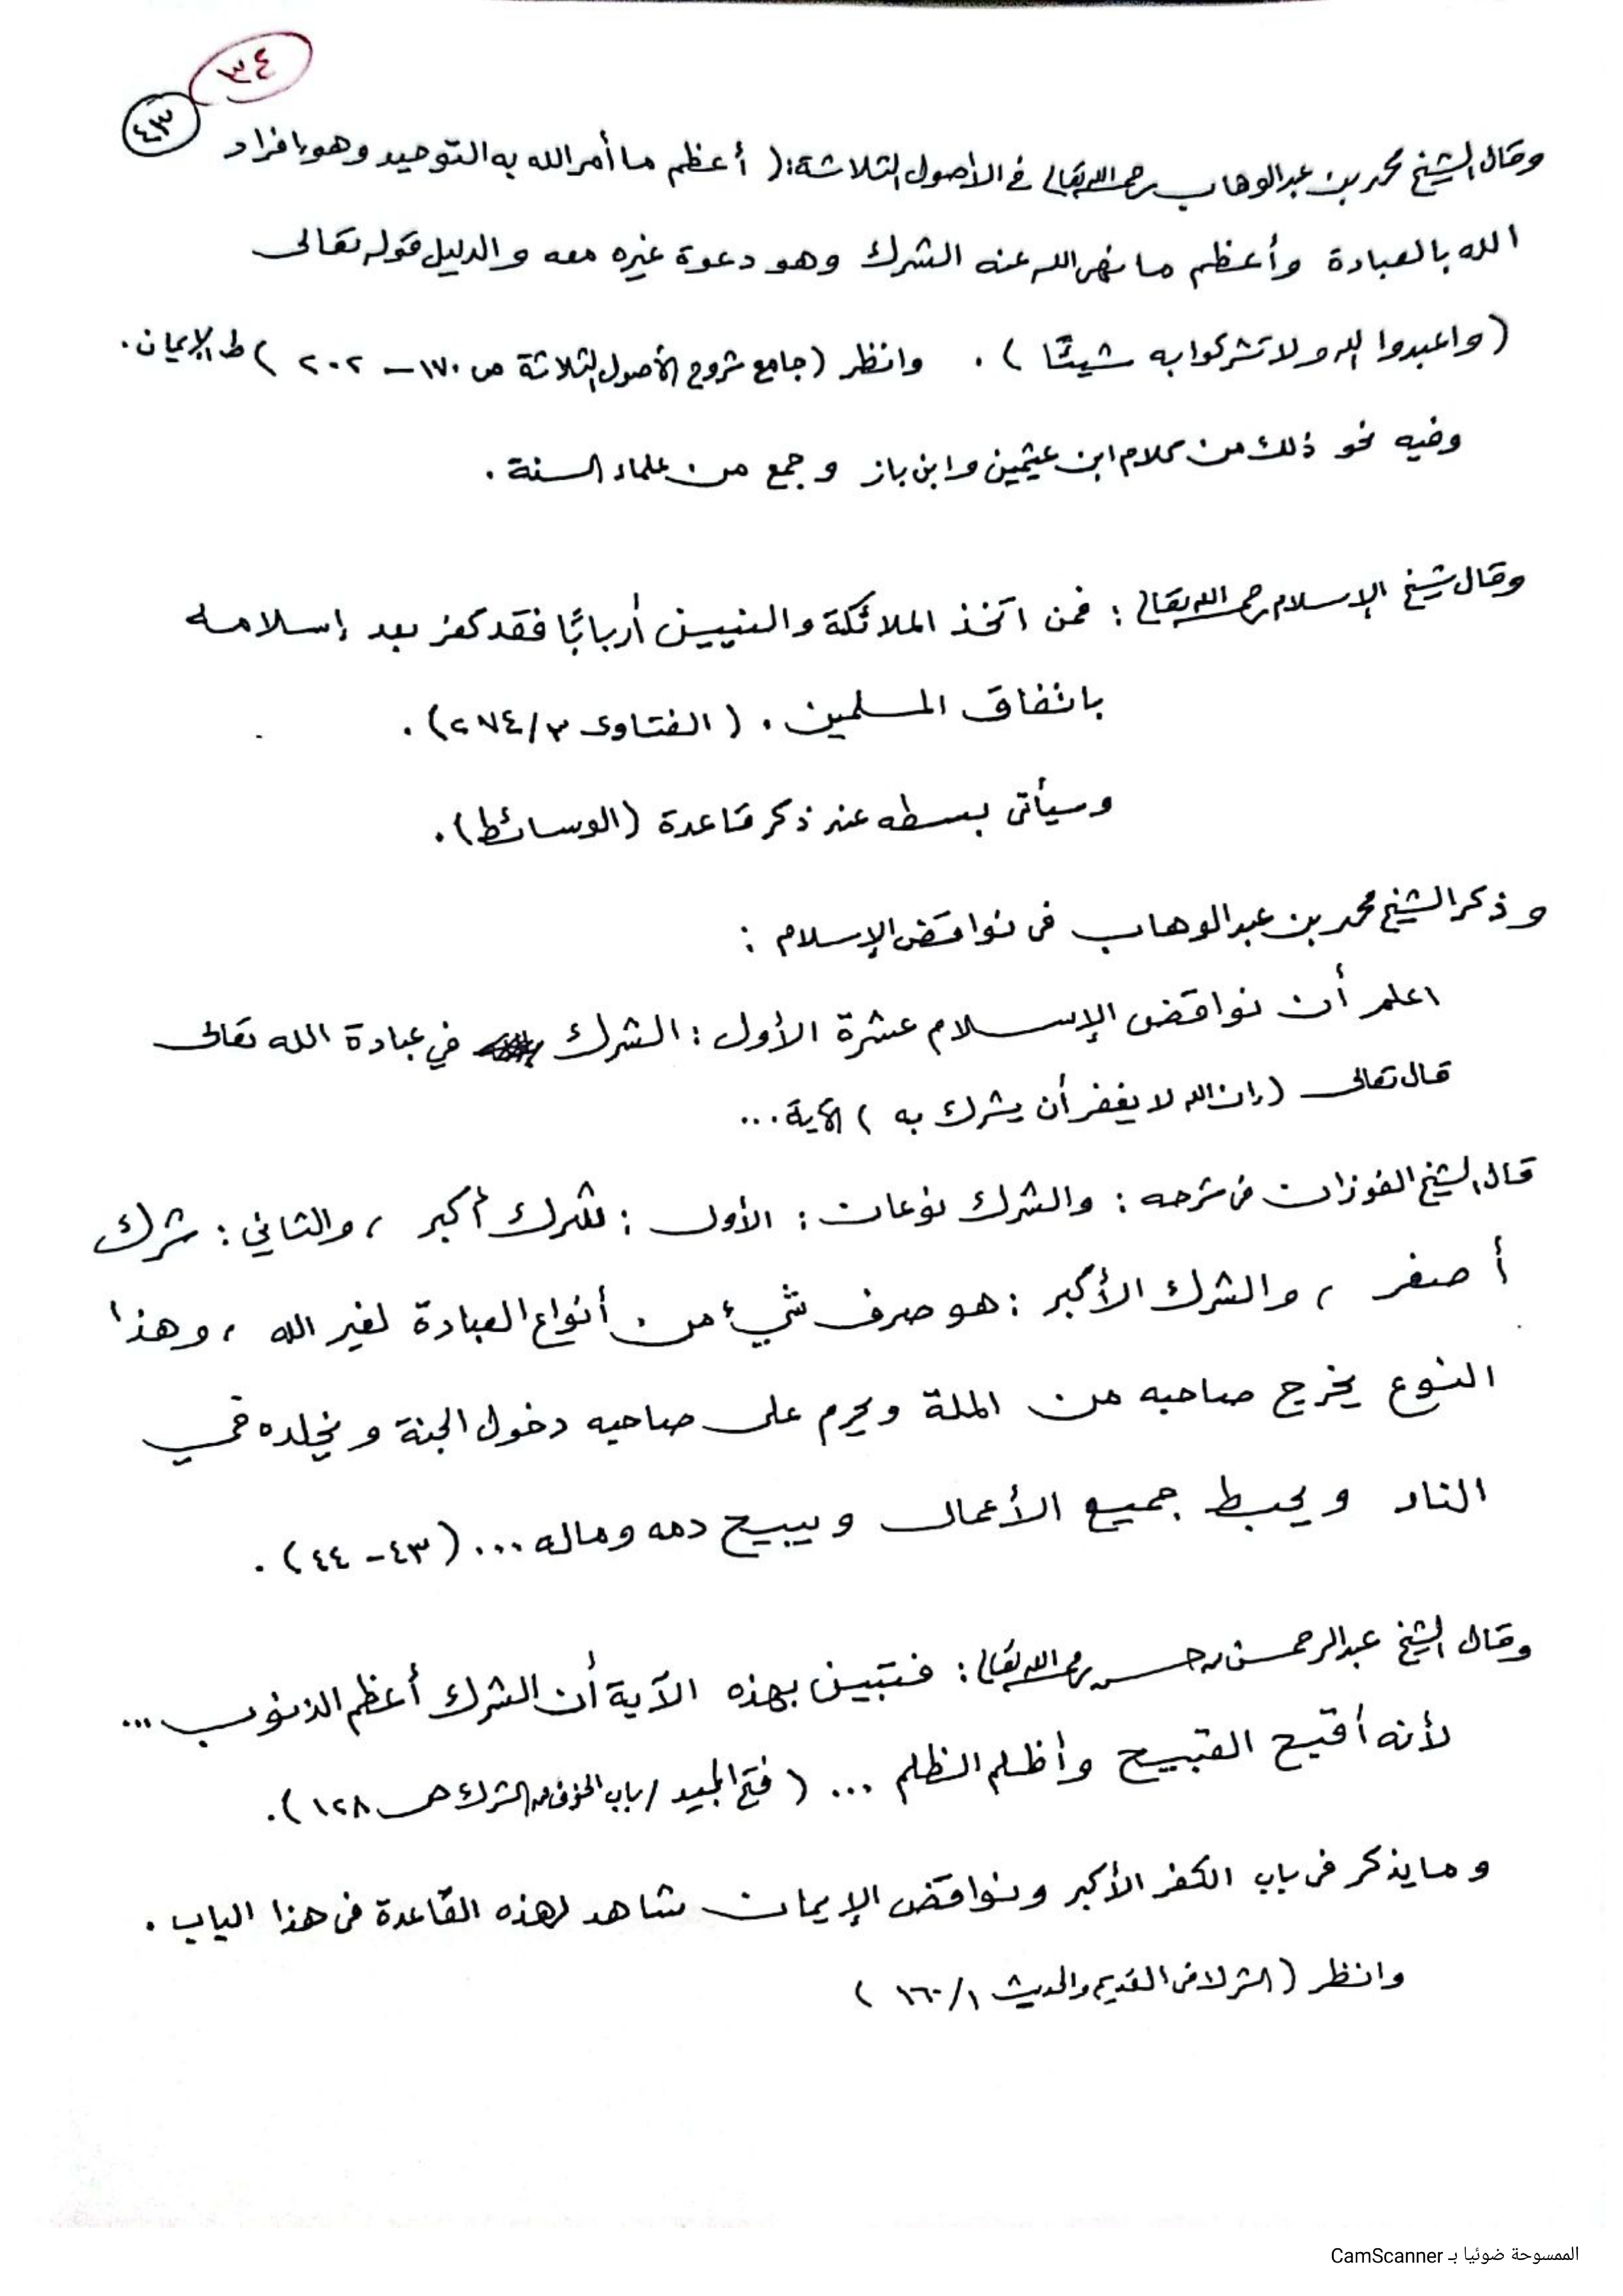 ٣٤
٤٣
وقال الشيخ محمد بن عبدالوهاب رحمه الله تعالى في الأصول الثلاثة: ( أعظم ما أمر الله به التوحيد وهو إفراد
الله بالعبادة وأعظم ما نهى الله عنه الشرك وهو دعوة غيره معه والدليل قوله تعالى
( واعبدوا الله ولا تشركوا به شيئًا ) . وانظر ( جامع شروح الأصول الثلاثة ص ١٧٠ - ٢٠٢ ) ط الإيمان .
وفيه نحو ذلك من كلام ابن عثيمين وابن باز وجمع من علماء السنة .
وقال شيخ الإسلام رحمه الله تعالى : فمن اتخذ الملائكة والنبيين أربابًا فقد كفر بعد إسلامه
باتفاق المسلمين . ( الفتاوى ٣/ ٢٧٤) .
وسيأتي بسطه عند ذكر قاعدة (الوسائط) .
وذكر الشيخ محمد بن عبدالوهاب في نواقض الإسلام :
اعلم أن نواقض الإسلام عشرة الأول : الشرك في عبادة الله تعالى
قال تعالى ( إن الله لا يغفر أن يشرك به ) الآية ...
قال الشيخ الفوزان في شرحه : والشرك نوعان : الأول : شرك أكبر ، والثاني : شرك
أصغر ، والشرك الأكبر : هو صرف شيء من أنواع العبادة لغير الله ، وهذا
النوع يخرج صاحبه من الملة ويحرم على صاحبه دخول الجنة ويخلده في
النار ويحبط جميع الأعمال ويبيح دمه وماله ... (٤٣ - ٤٤) .
وقال الشيخ عبدالرحمن بن حسن رحمه الله تعالى : فتبين بهذه الآية أن الشرك أعظم الذنوب ...
لأنه أقبح القبيح وأظلم الظلم ... ( فتح المجيد / باب الخوف من الشرك ص ١٢٨ ) .
وما يذكر في باب الكفر الأكبر ونواقض الإيمان شاهد لهذه القاعدة في هذا الباب .
وانظر ( الشرك في القديم والحديث ١/ ١٦٠ )
الممسوحة ضوئيا بـ CamScanner